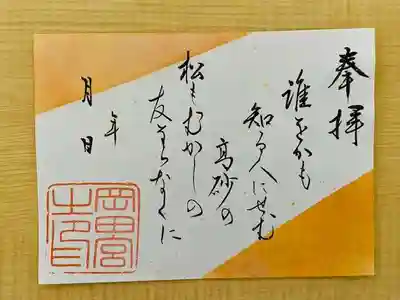 奉拝
誰をかも
知る人にせむ
高砂の
松もむかしの
友ならなくに
年
月日
岡田宮
之印